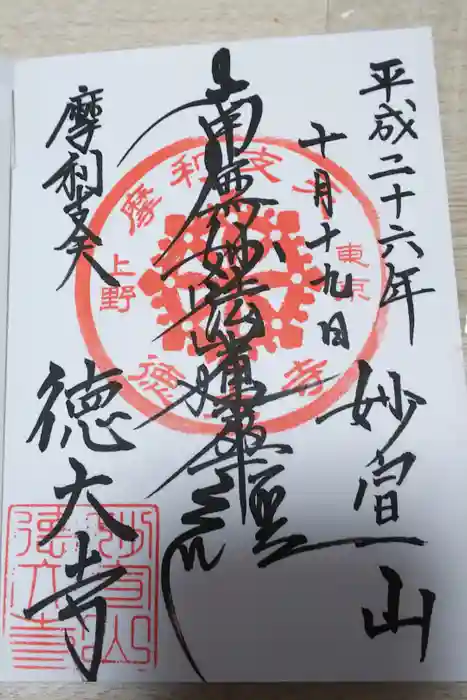 平成二十六年
十月十九日
妙宣山
南無妙法蓮華経
摩利支天
徳大寺
摩利支天
東京
上野
徳大寺
妙宣山
徳大寺